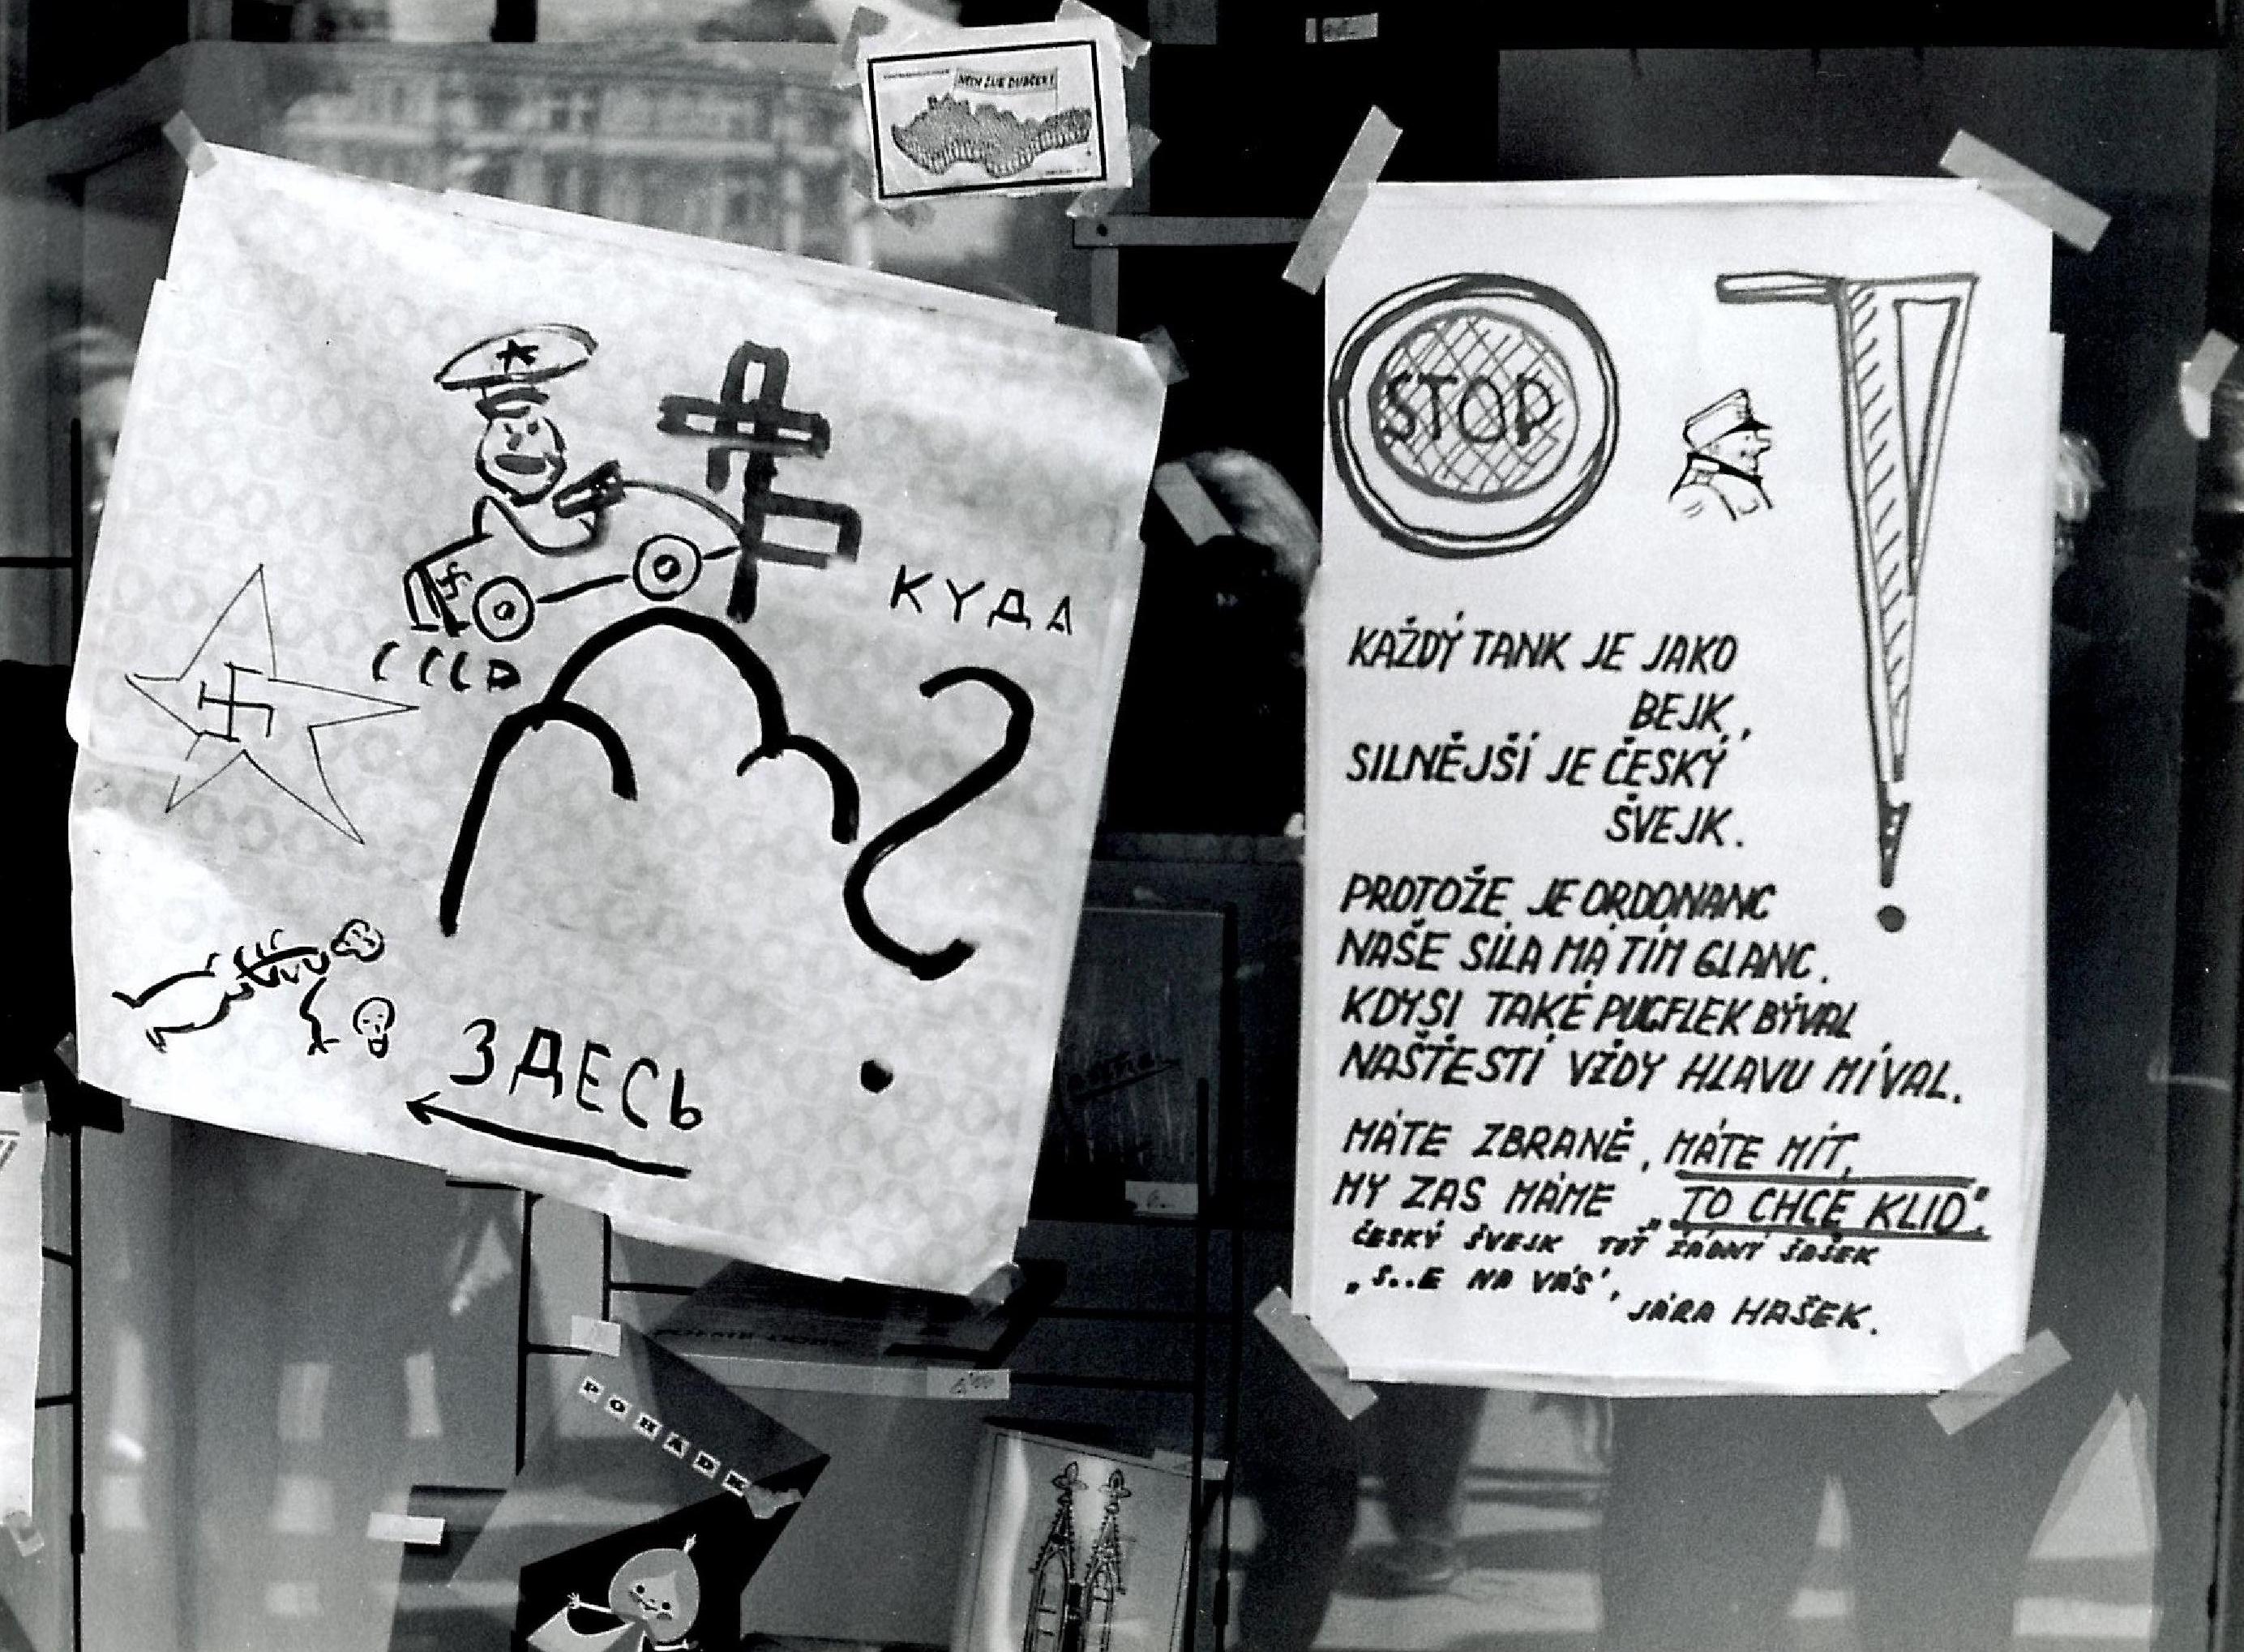 AŤ ŽIJE DUBČEK!
КУДА
СССР
?
ЗДЕСЬ
STOP
!
KAŽDÝ TANK JE JAKO
BEJK,
SILNĚJŠÍ JE ČESKÝ
ŠVEJK.
PROTOŽE JE ORDONANC
NAŠE SÍLA MÁ TÍM GLANC.
KDYSI TAKÉ PUCFLEK BÝVAL
NAŠTĚSTÍ VŽDY HLAVU MÍVAL.
MÁTE ZBRANĚ, MÁTE MÍT,
MY ZAS MÁME „TO CHCE KLID".
ČESKÝ ŠVEJK TOŤ ŽÁDNÝ ŠAŠEK
„S..E NA VÁS",
JÁRA HAŠEK.
POHADK